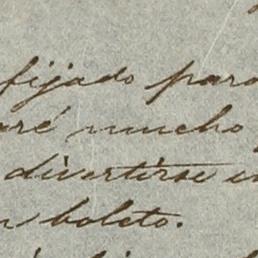 fijado para
aré mucho
divertirse en
n boleto.